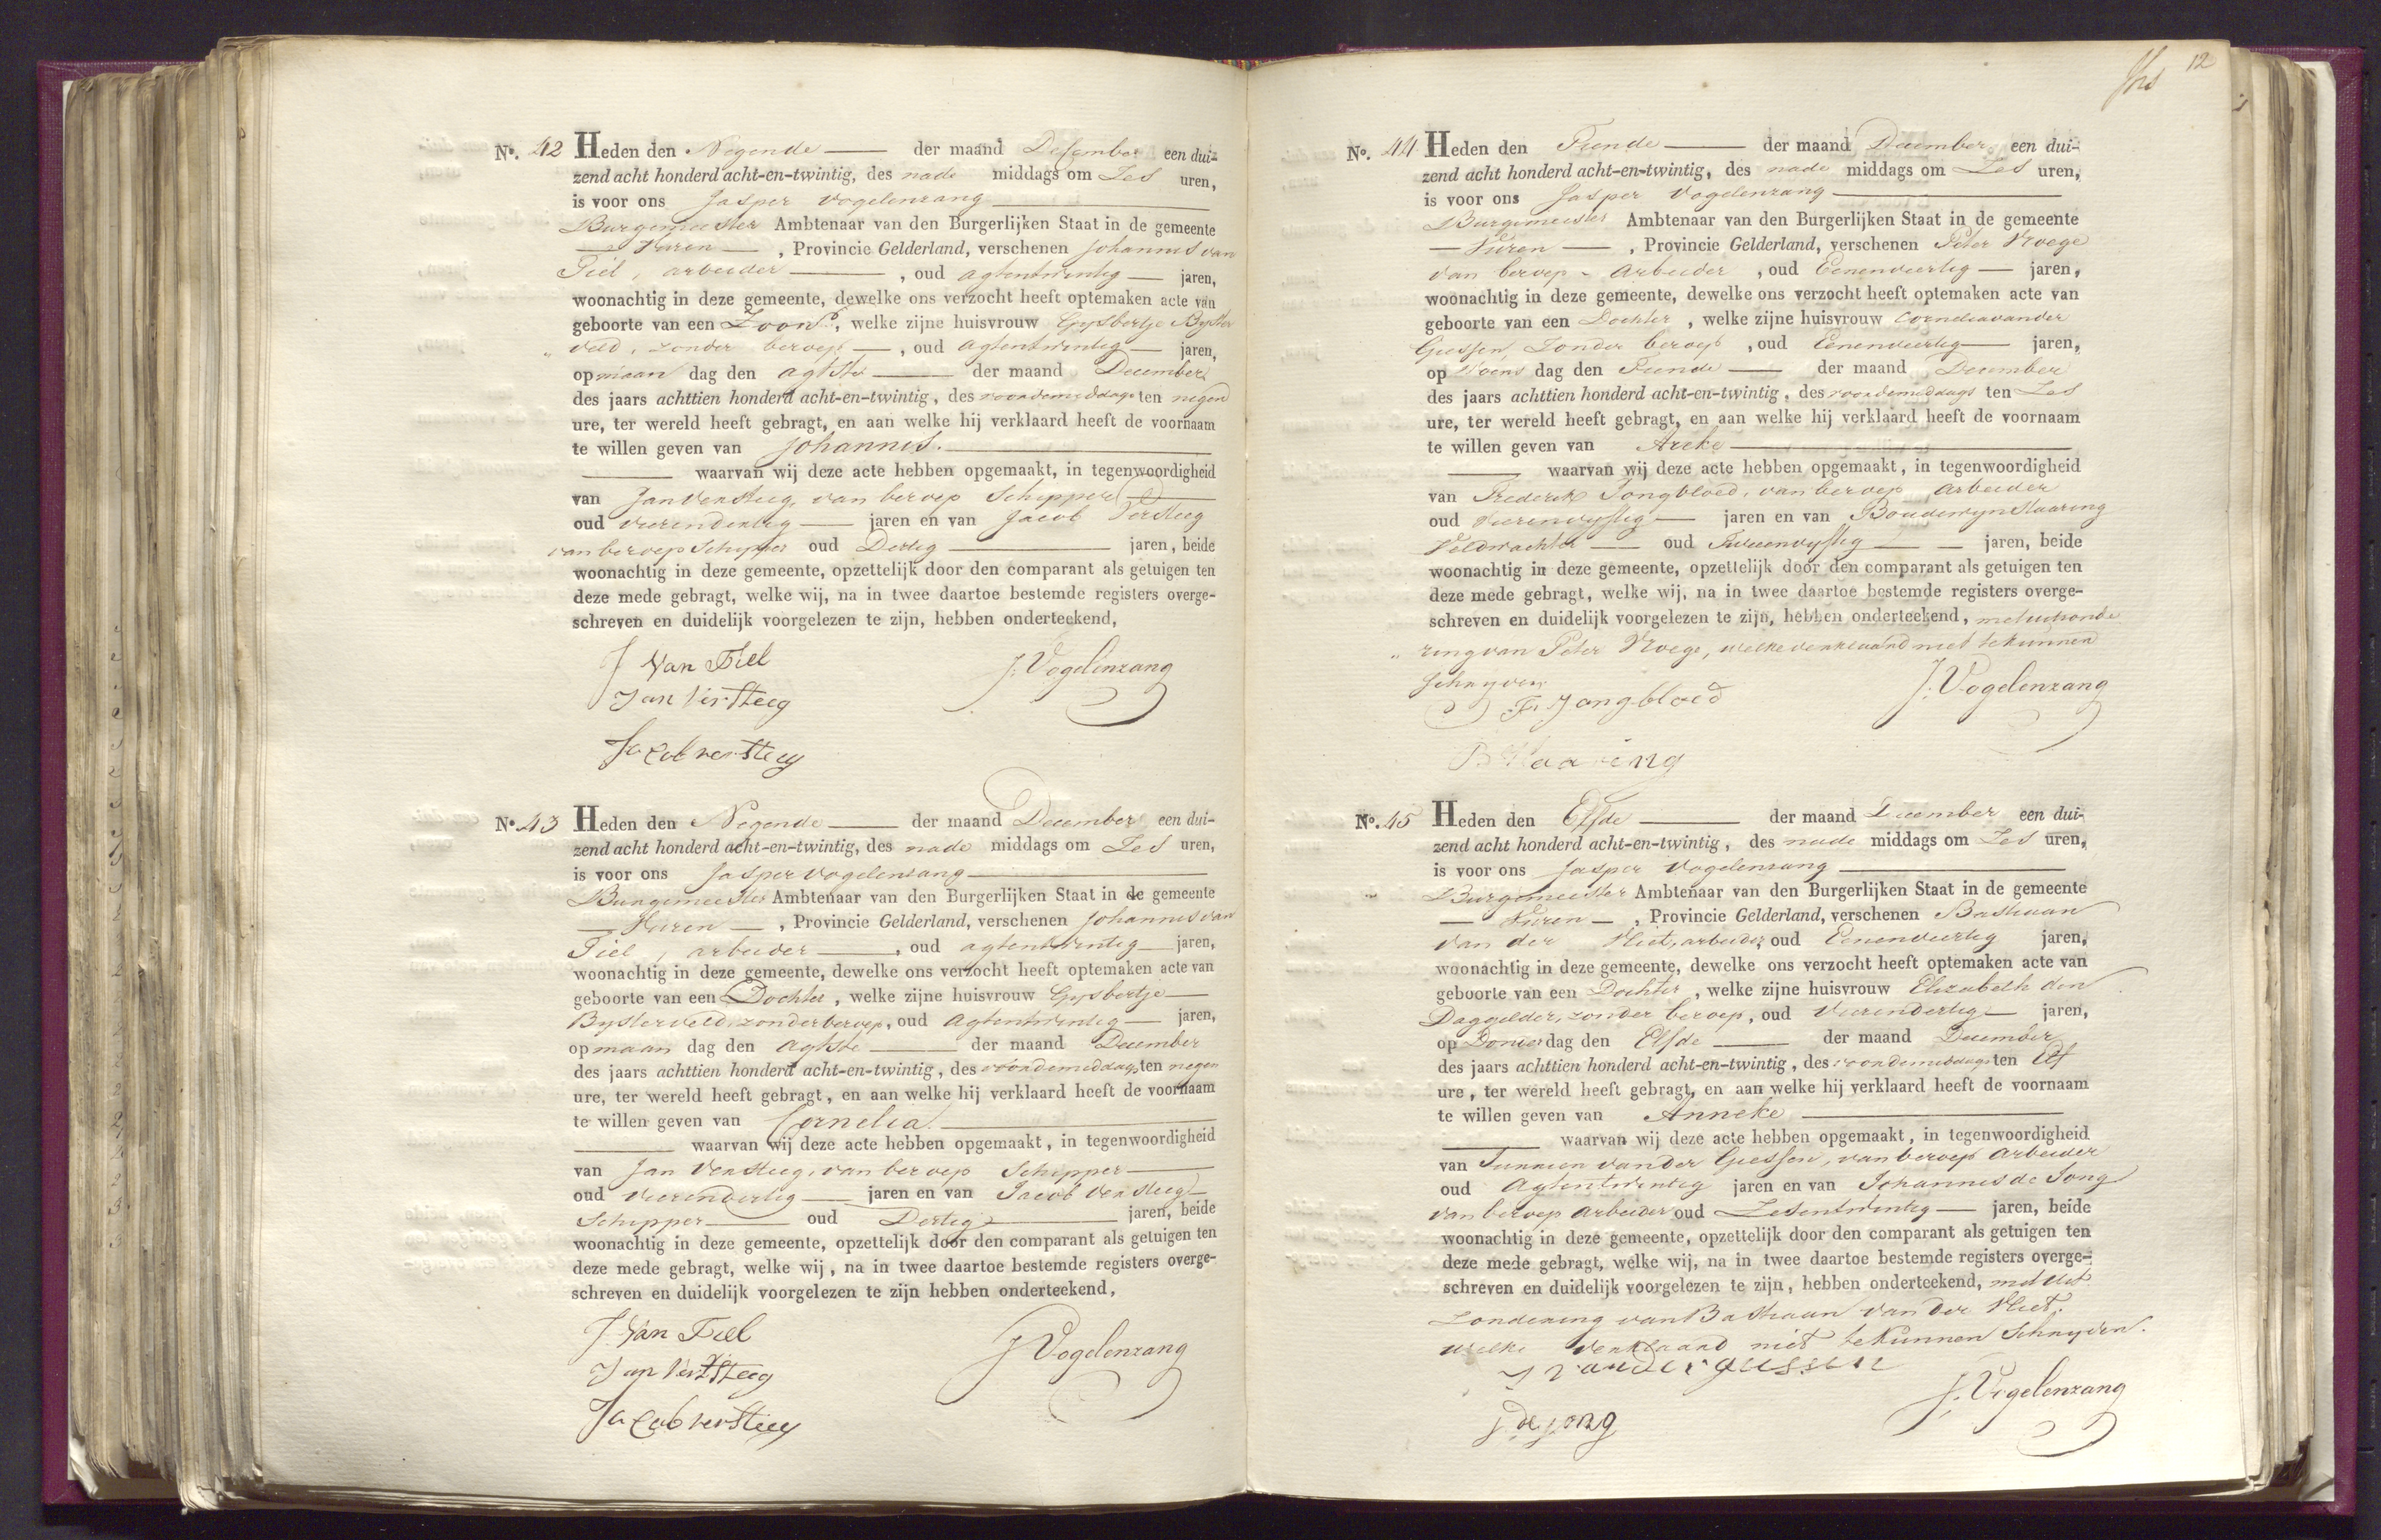 No. 42 Heden den Negende der maand December een dui-
zend acht honderd acht-en-twintig, des nade middags om Zes uren,
is voor ons Jasper Vogelenzang
Burgemeester Ambtenaar van den Burgerlijken Staat in de gemeente
Vuren, Provincie Gelderland, verschenen Johannis van
Tiel, arbeider, oud agtentwintig jaren,
woonachtig in deze gemeente, dewelke ons verzocht heeft optemaken acte van
geboorte van een Zoon, welke zijne huisvrouw Gysbertje Byster
„ veld, zonder beroep, oud agtentwintig jaren,
op maan dag den agtste der maand December
des jaars achttien honderd acht-en-twintig, des voordemiddags ten negen
ure, ter wereld heeft gebragt, en aan welke hij verklaard heeft de voornaam
te willen geven van Johannis.
waarvan wij deze acte hebben opgemaakt, in tegenwoordigheid
van Jan Versteeg, van beroep Schipper
oud vierendertig jaren en van Jacob Versteeg
van beroep Schipper oud Dertig jaren, beide
woonachtig in deze gemeente, opzettelijk door den comparant als getuigen ten
deze mede gebragt, welke wij, na in twee daartoe bestemde registers overge-
schreven en duidelijk voorgelezen te zijn, hebben onderteekend,
J Van Tiel J. Vogelenzang
Jan VerSteeg
Jacob verSteeg
No. 43 Heden den Negende der maand December een dui-
zend acht honderd acht-en-twintig, des nade middags om Zes uren,
is voor ons Jasper Vogelenzang
Burgemeester Ambtenaar van den Burgerlijken Staat in de gemeente
Vuren, Provincie Gelderland, verschenen Johannis van
Tiel, arbeider, oud agtentwintig jaren,
woonachtig in deze gemeente, dewelke ons verzocht heeft optemaken acte van
geboorte van een Dochter, welke zijne huisvrouw Gysbertje
Bysterveld, zonder beroep, oud Agtentwintig jaren,
op maan dag den Agtste der maand December
des jaars achttien honderd acht-en-twintig, des voordemiddags ten negen
ure, ter wereld heeft gebragt, en aan welke hij verklaard heeft de voornaam
te willen geven van Cornelia.
waarvan wij deze acte hebben opgemaakt, in tegenwoordigheid
van Jan Versteeg, van beroep Schipper
oud vierendertig jaren en van Jacob Versteeg
Schipper oud Dertig jaren, beide
woonachtig in deze gemeente, opzettelijk door den comparant als getuigen ten
deze mede gebragt, welke wij, na in twee daartoe bestemde registers overge-
schreven en duidelijk voorgelezen te zijn hebben onderteekend,
J. Van Tiel J Vogelenzang
Jan VerSteeg
Jacob verSteeg
12
No. 44 Heden den Tiende der maand December een dui-
zend acht honderd acht-en-twintig, des nade middags om Zes uren,
is voor ons Jasper Vogelenzang
Burgemeester Ambtenaar van den Burgerlijken Staat in de gemeente
Vuren, Provincie Gelderland, verschenen Peter Vroege
van beroep Arbeider, oud Eenenveertig jaren,
woonachtig in deze gemeente, dewelke ons verzocht heeft optemaken acte van
geboorte van een Dochter, welke zijne huisvrouw Cornelia vander
Giessen, Zonder beroep, oud Eenenveertig jaren,
op Woens dag den Tiende der maand December
des jaars achttien honderd acht-en-twintig, des voordemiddags ten Zes
ure, ter wereld heeft gebragt, en aan welke hij verklaard heeft de voornaam
te willen geven van Areke
waarvan wij deze acte hebben opgemaakt, in tegenwoordigheid
van Frederik Jongbloed, van beroep, arbeider
oud Vierenvyftig jaren en van Boudewyn Staaring
Veldwachter oud Tweeenvyftig jaren, beide
woonachtig in deze gemeente, opzettelijk door den comparant als getuigen ten
deze mede gebragt, welke wij, na in twee daartoe bestemde registers overge-
schreven en duidelijk voorgelezen te zijn, hebben onderteekend, met uitsonde
„ ring van Peter Vroege, welke verklaard niet te kunnen
Schryven
F. Jongbloed J. Vogelenzang
B Staaring
No. 45 Heden den Elfde der maand December een dui-
zend acht honderd acht-en-twintig, des nade middags om Zes uren,
is voor ons Jasper Vogelenzang
Burgemeester Ambtenaar van den Burgerlijken Staat in de gemeente
Vuren, Provincie Gelderland, verschenen Bastiaan
van der Vliet, arbeider, oud Eenenveertig jaren,
woonachtig in deze gemeente, dewelke ons verzocht heeft optemaken acte van
geboorte van een Dochter, welke zijne huisvrouw Elizabeth den
Daggelder, zonder beroep, oud vierendertig jaren,
op Donder dag den Elfde der maand December
des jaars achttien honderd acht-en-twintig, des voordemiddags ten Elf
ure, ter wereld heeft gebragt, en aan welke hij verklaard heeft de voornaam
te willen geven van Anneke
waarvan wij deze acte hebben opgemaakt, in tegenwoordigheid
van vander Giessen, van beroep Arbeider
oud Agtentwintig jaren en van Johannis de Jong
van beroep Arbeider oud Zesentwintig jaren, beide
woonachtig in deze gemeente, opzettelijk door den comparant als getuigen ten
deze mede gebragt, welke wij, na in twee daartoe bestemde registers overge-
schreven en duidelijk voorgelezen te zijn, hebben onderteekend, met uit
zondering van Bastiaan van der Vliet,
welke verklaard niet te kunnen Schryven.
vandergiessen
J. Vogelenzang
J de jong